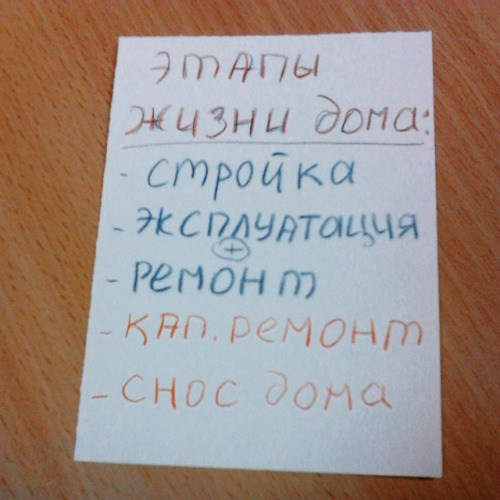 этапы
жизни дома:
- стройка
- эксплуатация
+
- ремонт
- кап. ремонт
- снос дома